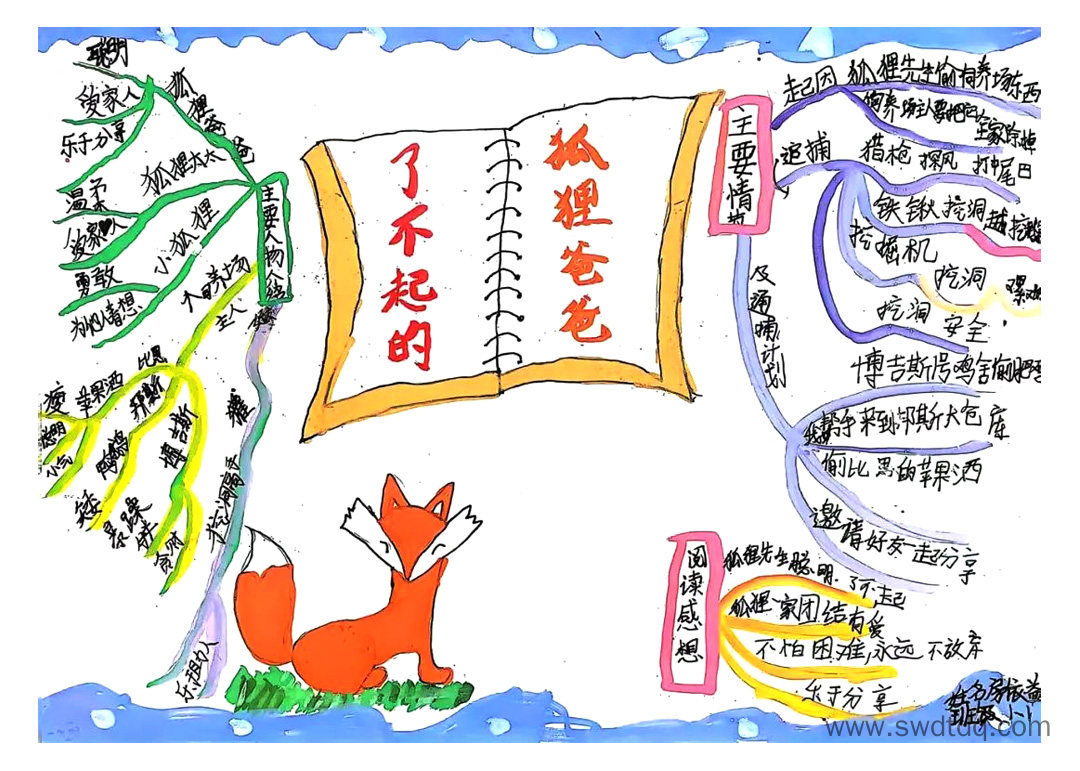 了不起的
狐狸爸爸
主要人物介绍
狐狸爸爸
聪明
爱家人
乐于分享
狐狸太太
温柔
爱家人
小狐狸
勇敢
为他人着想
饲养场
主人
比恩
苹果酒
瘦
聪明
小气
邦斯
鸭鹅
矮
暴躁
博吉斯
贪财
獾
挖洞高手
乐于助人
主要情节
起因
狐狸先生偷饲养场东西
饲养场主人要把它
全家除掉
追捕
猎枪
探风
打中尾巴
铁锹
挖洞
挖掘机
挖洞
挖洞
安全
反逋捕计划
博吉斯号鸡舍偷肥
帮手来到邦斯大仓库
偷比恩的苹果酒
邀请好友一起分享
阅读感想
狐狸先生聪明.了不起
狐狸一家团结有爱
不怕困难,永远不放弃
乐于分享
姓名
班级
www.swdtdq.com